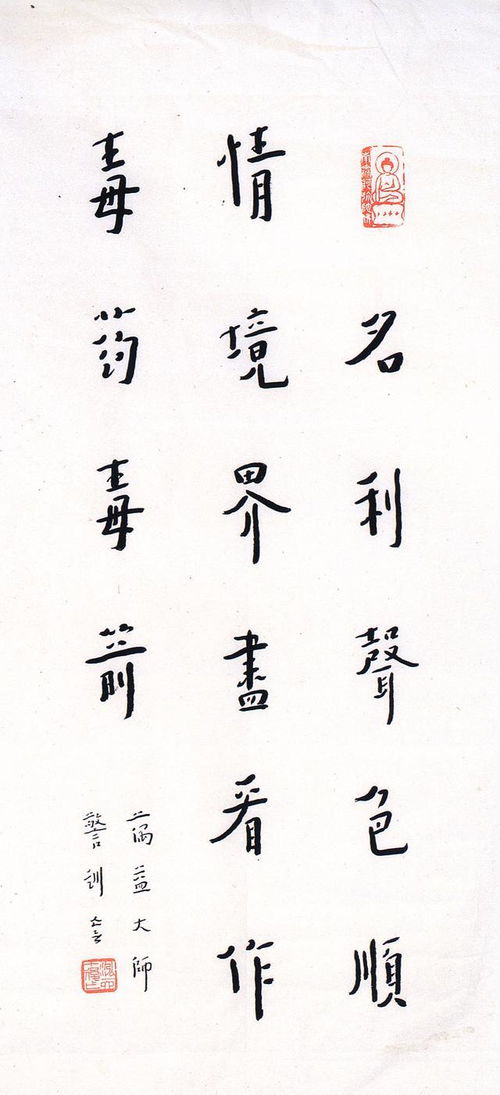 名利聲色順
情境界盡看作
毒葯毒箭
蕅益大師
警訓